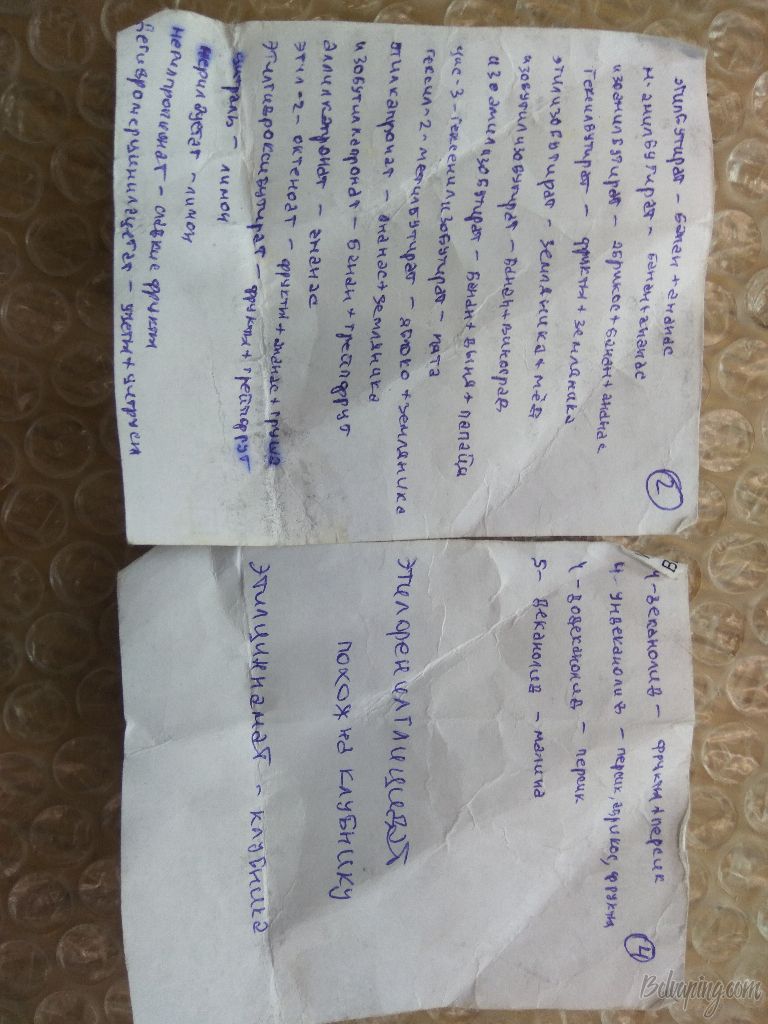 этилбутират - банан + ананас
н-амилбутират - банан + ананас
изоамилбутират - абрикос + банан + ананас
гексилбутират - фрукты + земляника
этилизобутират - земляника + мёд
изобутилизобутират - банан + виноград
изоамилизобутират - банан + дыня + папайа
цис-3-гексенилизобутират - мята
гексил-2-метилбутират - яблоко + земляника
этилкапронат - ананас + земляника
изобутилкапронат - банан + грейпфрут
аллилкапронат - ананас
этил-2-октеноат - фрукты + ананас + груша
этилгидроксибутират - фрукты + грейпфрут
цитраль - лимон
нерилацетат - лимон
нерилпропионат - сладкие фрукты
дегидромерцинилацетат - цветы + цитрусы
2
4-деканолид - фрукты + персик
4-ундеканолид - персик, абрикос, фрукты
4-додеканолид - персик
5-деканолид - малина
этилфенилглицидат
похож на клубнику
этилциннамат - клубника
4
Belvaping.com